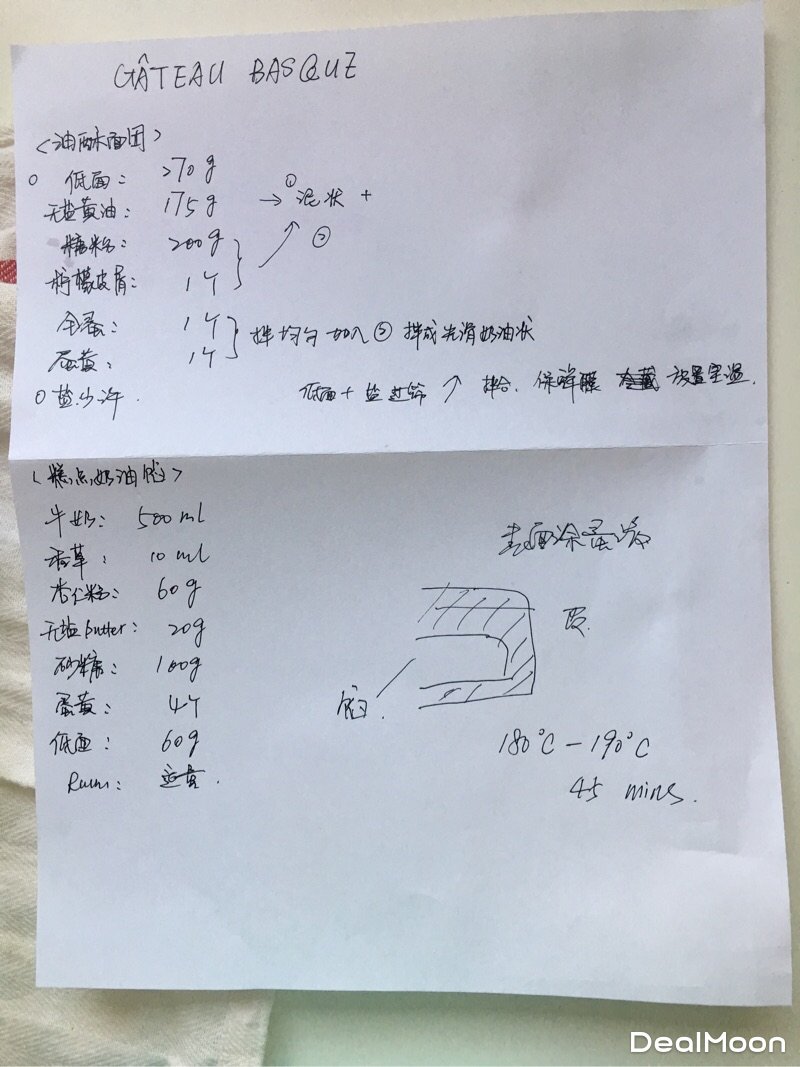 GÂTEAU BASQUE
<油酥面团>
○ 低面: 270g
无盐黄油: 175g → ① 泥状 +
糖粉: 200g ②
柠檬皮屑: 1个
全蛋: 1个 拌均匀加入② 拌成光滑奶油状
蛋黄: 1个
○ 盐少许. 低面+盐过筛 ↗ 拌合. 保鲜膜 冷藏 放置室温.
<糕点奶油馅>
牛奶: 500ml
香草: 10ml
杏仁粉: 60g
无盐butter: 20g
砂糖: 100g
蛋黄: 4个
低面: 60g
Rum: 适量.
表面涂蛋液
皮.
馅.
180°C - 190°C
45 mins.
DealMoon